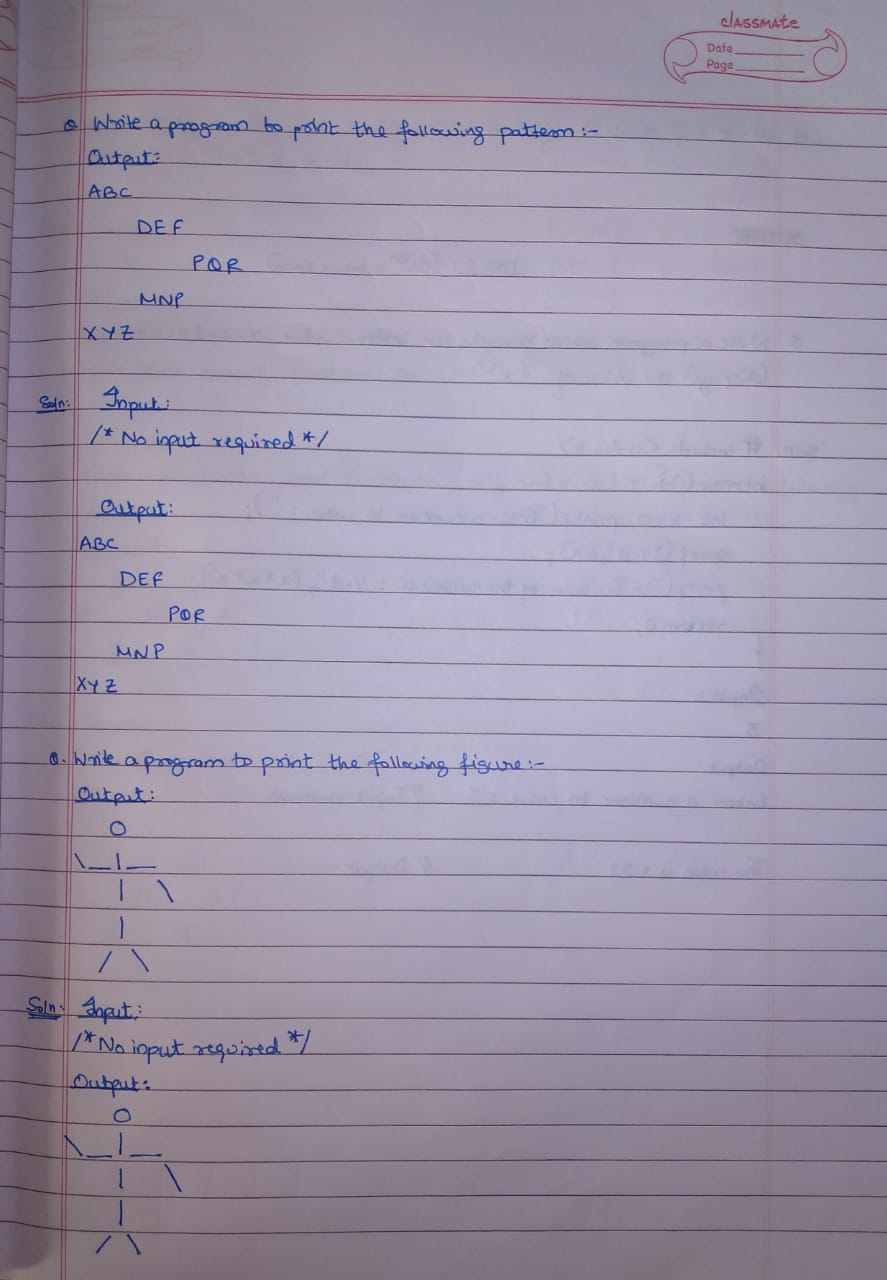 classmate
Date
Page
Q Write a program to print the following pattern :-
Output:
ABC
DEF
PQR
MNP
XYZ
Soln: Input:
/* No input required */
Output:
ABC
DEF
PQR
MNP
XYZ
Q. Write a program to print the following figure :-
Output:
O
\_|_
| \
|
/ \
Soln: Input:
/* No input required */
Output:
O
\_|_
| \
|
/ \